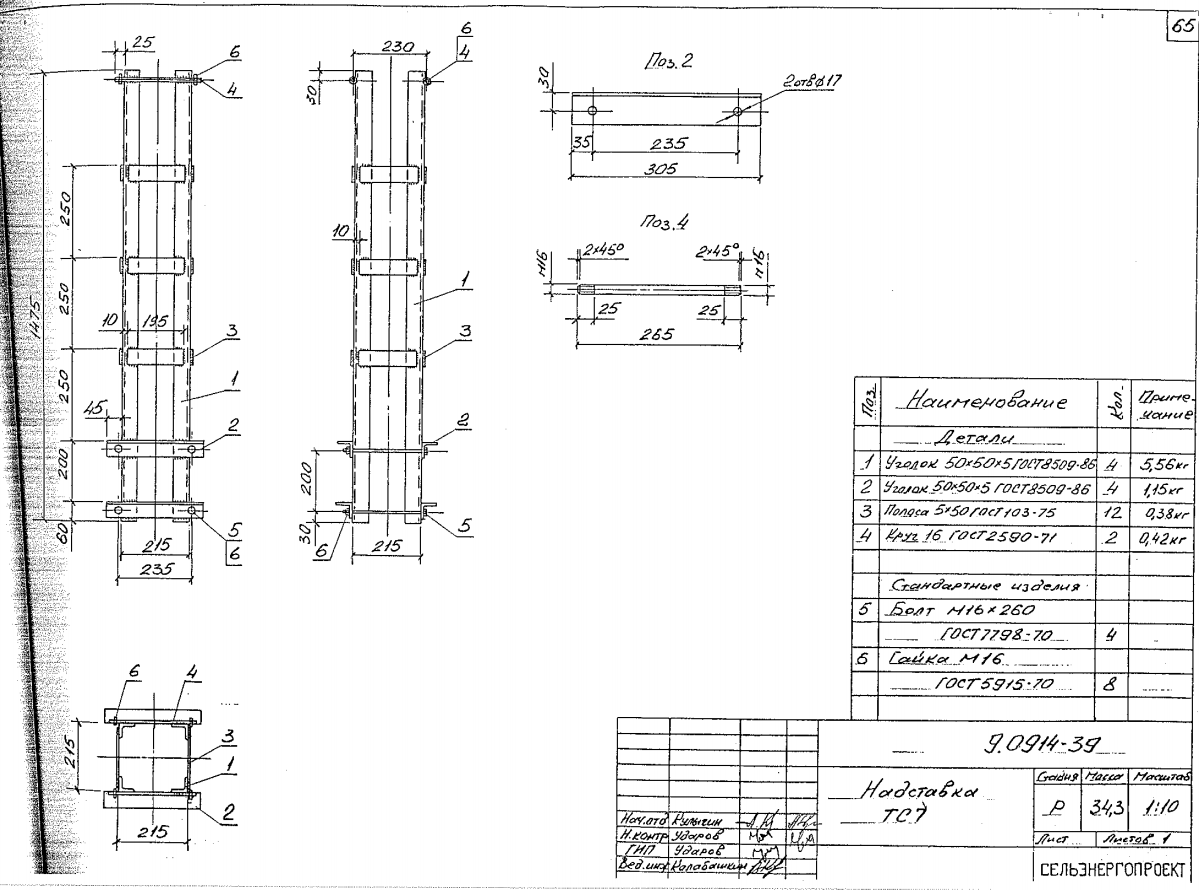 65
25
6
4
230
6
4
30
Поз. 2
30
2 отв ⌀17
35
235
305
250
250
250
200
60
1475
10
195
3
1
45
2
5
6
215
235
10
1
3
2
200
30
6
5
215
Поз. 4
2×45°
2×45°
М16
М16
25
25
265
6
4
3
1
2
215
215
Поз. Наименование Кол. Приме-
чание
Детали
1 Уголок 50×50×5 ГОСТ 8509-86 4 5,56кг
2 Уголок 50×50×5 ГОСТ 8509-86 4 1,15кг
3 Полоса 5×50 ГОСТ 103-75 12 0,38кг
4 Круг 16 ГОСТ 2590-71 2 0,42кг
Стандартные изделия
5 Болт М16×260
ГОСТ 7798-70 4
6 Гайка М16
ГОСТ 5915-70 8
9.0914-39
Надставка
ТС7
Стадия Масса Масштаб
Р 34,3 1:10
Лист Листов 1
Нач.отд Кулыгин
Н.контр Ударов
ГИП Ударов
Вед.инж Калабашкин
СЕЛЬЭНЕРГОПРОЕКТ